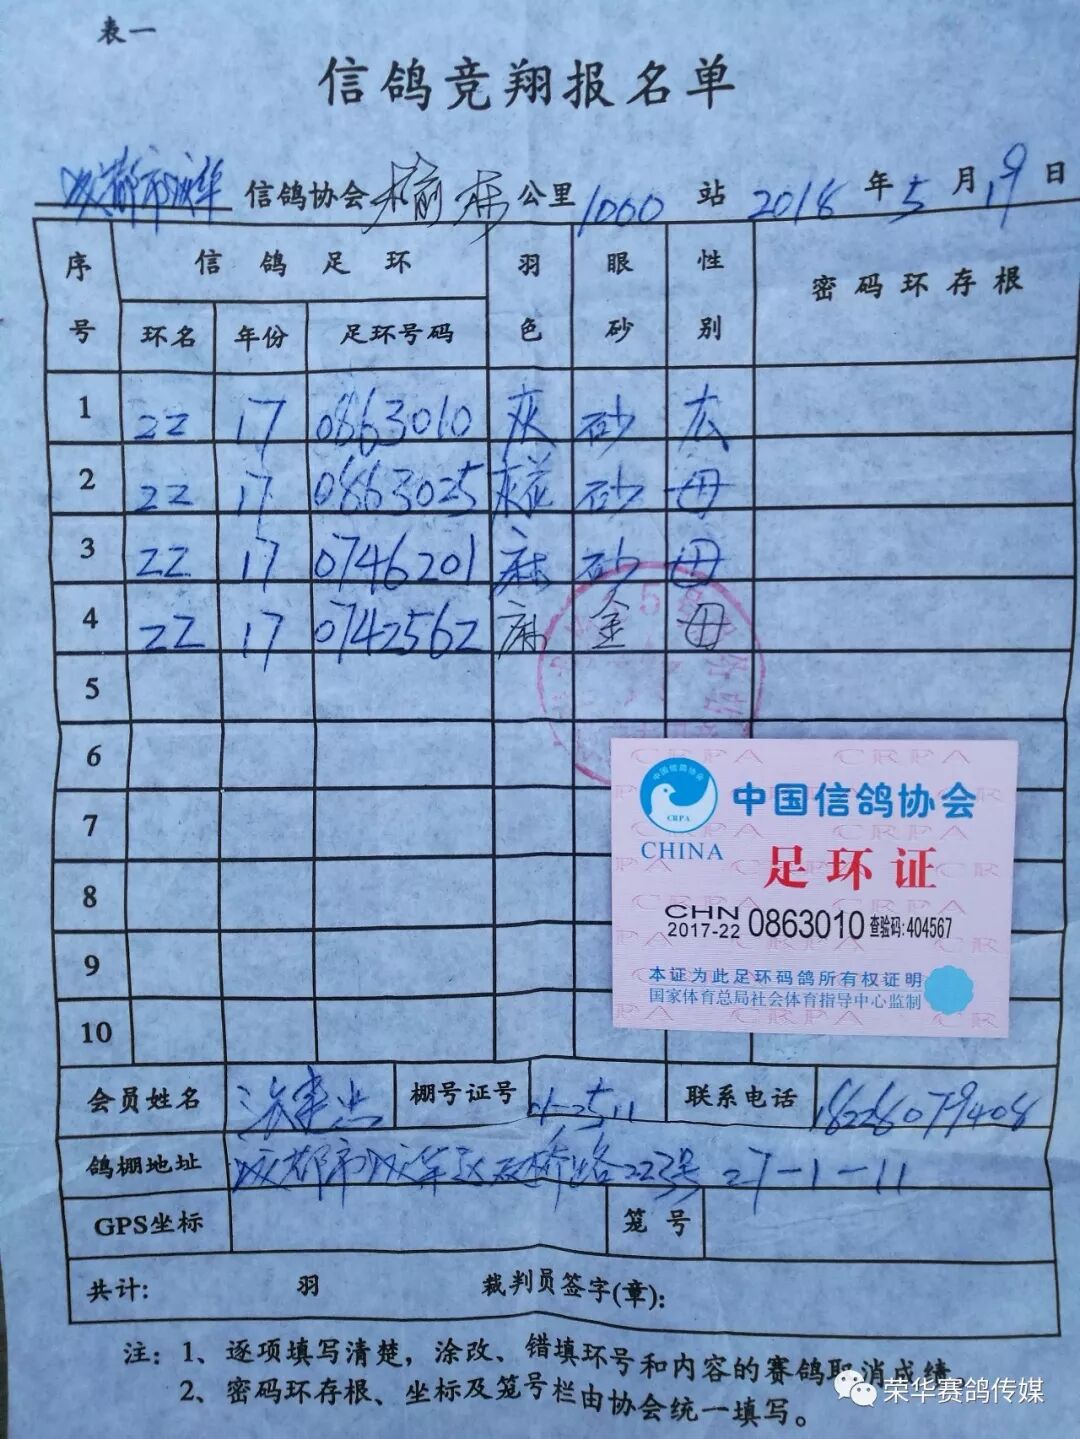 表一
信鸽竞翔报名单
成都市成华 信鸽协会 榆林 公里 1000 站 2018 年 5 月 19 日
序号 信鸽足环 羽色 眼砂 性别 密码环存根
环名 年份 足环号码
1 22 17 0863010 灰 砂 公
2 22 17 0863025 灰花 砂 母
3 22 17 0746201 麻 砂 母
4 22 17 0742562 麻 金 母
5
6
7
8
9
10
中国信鸽协会
CRPA
CHINA
中国信鸽协会
足环证
CHN
2017-22 0863010 查验码:404567
本证为此足环码鸽所有权证明
国家体育总局社会体育指导中心监制
会员姓名 棚号证号 联系电话 18228079408
鸽棚地址 成都市成华区 桥路223号 27-1-11
GPS坐标 笼号
共计: 羽 裁判员签字(章):
注: 1、逐项填写清楚，涂改、错填环号和内容的赛鸽取消成绩。
2、密码环存根、坐标及笼号栏由协会统一填写。
荣华赛鸽传媒